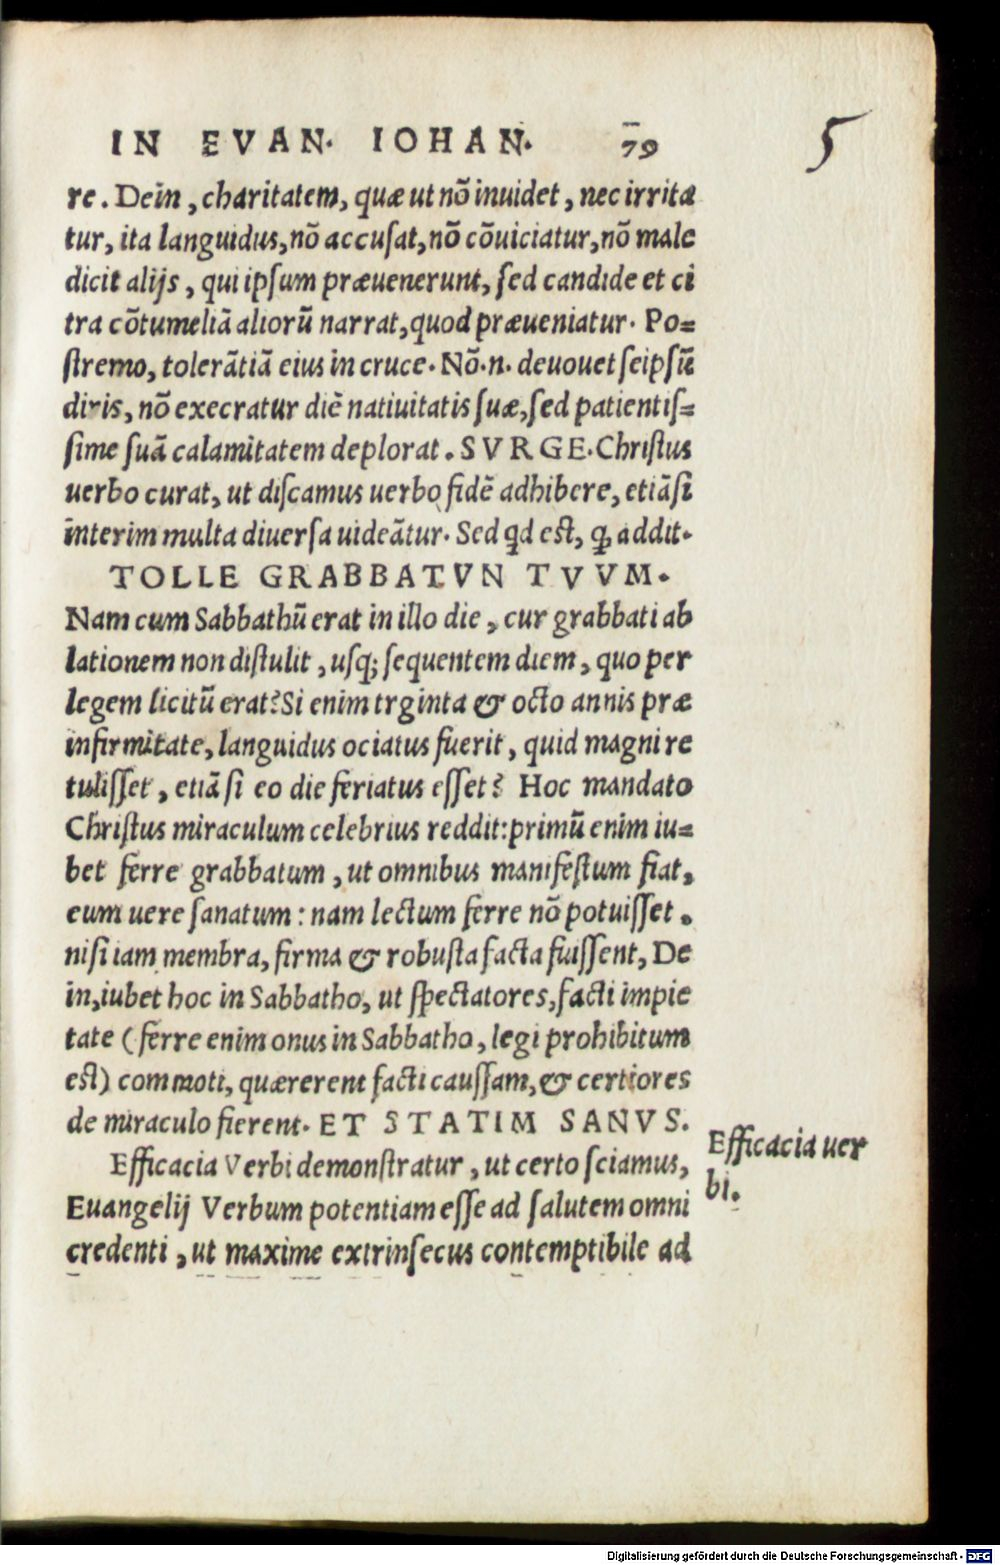 IN EVAN. IOHAN. 79
5
re. Dein, charitatem, quæ ut nõ inuidet, nec irrita
tur, ita languidus, nõ accusat, nõ cõuiciatur, nõ male
dicit alijs, qui ipsum præuenerunt, sed candide et ci
tra cõtumeliã alioru᷈ narrat, quod præueniatur. Po=
stremo, tolerãtiã eius in cruce. Nõ.n. deuouet seipsũ
diris, nõ execratur diẽ natiuitatis suæ, sed patientis=
sime suã calamitatem deplorat. SVRGE. Christus
uerbo curat, ut discamus uerbo fidẽ adhibere, etiãsi
interim multa diuersa uideãtur. Sed qd est, ꝙ addit.
TOLLE GRABBATVN TVVM.
Nam cum Sabbathũ erat in illo die, cur grabbati ab
lationem non distulit, usq; sequentem diem, quo per
legem licitũ erat? Si enim trginta & octo annis præ
infirmitate, languidus ociatus fuerit, quid magni re
tulisset, etiã si eo die feriatus esset? Hoc mandato
Christus miraculum celebrius reddit: primũ enim iu=
bet ferre grabbatum, ut omnibus manifestum fiat,
eum uere sanatum: nam lectum ferre nõ potuisset.
nisi iam membra, firma & robusta facta fuissent, De
in, iubet hoc in Sabbatho, ut spectatores, facti impie
tate (ferre enim onus in Sabbatho, legi prohibitum
est) commoti, quærerent facti caussam, & certiores
de miraculo fierent. ET STATIM SANVS.
Efficacia Verbi demonstratur, ut certo sciamus,
Euangelij Verbum potentiam esse ad salutem omni
credenti, ut maxime extrinsecus contemptibile ad
Efficacia uer
bi.
Digitalisierung gefördert durch die Deutsche Forschungsgemeinschaft - DFG